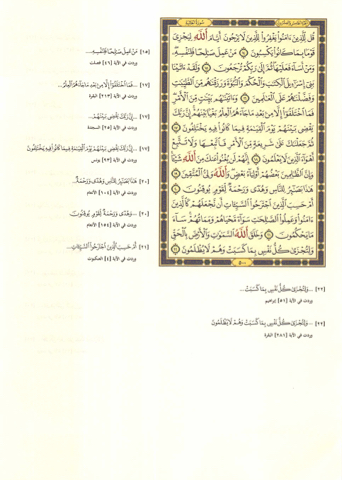 سورة الجاثية
قُل لِّلَّذِينَ ءَامَنُوا۟ يَغْفِرُوا۟ لِلَّذِينَ لَا يَرْجُونَ أَيَّامَ ٱللَّهِ لِيَجْزِىَ
قَوْمًۢا بِمَا كَانُوا۟ يَكْسِبُونَ ١٤ مَنْ عَمِلَ صَٰلِحًا فَلِنَفْسِهِۦ
وَمَنْ أَسَآءَ فَعَلَيْهَا ثُمَّ إِلَىٰ رَبِّكُمْ تُرْجَعُونَ ١٥ وَلَقَدْ ءَاتَيْنَا
بَنِىٓ إِسْرَٰٓءِيلَ ٱلْكِتَٰبَ وَٱلْحُكْمَ وَٱلنُّبُوَّةَ وَرَزَقْنَٰهُم مِّنَ ٱلطَّيِّبَٰتِ
وَفَضَّلْنَٰهُمْ عَلَى ٱلْعَٰلَمِينَ ١٦ وَءَاتَيْنَٰهُم بَيِّنَٰتٍ مِّنَ ٱلْأَمْرِ
فَمَا ٱخْتَلَفُوٓا۟ إِلَّا مِنۢ بَعْدِ مَا جَآءَهُمُ ٱلْعِلْمُ بَغْيًۢا بَيْنَهُمْ إِنَّ رَبَّكَ
يَقْضِى بَيْنَهُمْ يَوْمَ ٱلْقِيَٰمَةِ فِيمَا كَانُوا۟ فِيهِ يَخْتَلِفُونَ ١٧
ثُمَّ جَعَلْنَٰكَ عَلَىٰ شَرِيعَةٍ مِّنَ ٱلْأَمْرِ فَٱتَّبِعْهَا وَلَا تَتَّبِعْ
أَهْوَآءَ ٱلَّذِينَ لَا يَعْلَمُونَ ١٨ إِنَّهُمْ لَن يُغْنُوا۟ عَنكَ مِنَ ٱللَّهِ شَيْـًٔا
وَإِنَّ ٱلظَّٰلِمِينَ بَعْضُهُمْ أَوْلِيَآءُ بَعْضٍ وَٱللَّهُ وَلِىُّ ٱلْمُتَّقِينَ ١٩
هَٰذَا بَصَٰٓئِرُ لِلنَّاسِ وَهُدًى وَرَحْمَةٌ لِّقَوْمٍ يُوقِنُونَ ٢٠
أَمْ حَسِبَ ٱلَّذِينَ ٱجْتَرَحُوا۟ ٱلسَّيِّـَٔاتِ أَن نَّجْعَلَهُمْ كَٱلَّذِينَ
ءَامَنُوا۟ وَعَمِلُوا۟ ٱلصَّٰلِحَٰتِ سَوَآءً مَّحْيَاهُمْ وَمَمَاتُهُمْ سَآءَ
مَا يَحْكُمُونَ ٢١ وَخَلَقَ ٱللَّهُ ٱلسَّمَٰوَٰتِ وَٱلْأَرْضَ بِٱلْحَقِّ
وَلِتُجْزَىٰ كُلُّ نَفْسٍۭ بِمَا كَسَبَتْ وَهُمْ لَا يُظْلَمُونَ ٢٢
٥٠٠
[١٥] مَنْ عَمِلَ صَٰلِحًا فَلِنَفْسِهِۦ...
وردت في الآية [٤٦] فصلت
[١٧] ...فَمَا ٱخْتَلَفُوٓا۟ إِلَّا مِنۢ بَعْدِ مَا جَآءَهُمُ ٱلْعِلْمُ...
وردت في الآية [٢١٣] البقرة
[١٧] ...إِنَّ رَبَّكَ يَقْضِى بَيْنَهُمْ...
وردت في الآية [٢٥] السجدة
[١٧] ...إِنَّ رَبَّكَ يَقْضِى بَيْنَهُمْ يَوْمَ ٱلْقِيَٰمَةِ فِيمَا كَانُوا۟ فِيهِ يَخْتَلِفُونَ
وردت في الآية [٩٣] يونس
[٢٠] هَٰذَا بَصَٰٓئِرُ لِلنَّاسِ وَهُدًى وَرَحْمَةٌ...
وردت في الآية [١٠٤] الأنعام
[٢٠] ...وَهُدًى وَرَحْمَةٌ لِّقَوْمٍ يُوقِنُونَ
وردت في الآية [١٥٤] الأنعام
[٢١] أَمْ حَسِبَ ٱلَّذِينَ ٱجْتَرَحُوا۟ ٱلسَّيِّـَٔاتِ...
وردت في الآية [٤] العنكبوت
[٢٢] ...وَلِتُجْزَىٰ كُلُّ نَفْسٍۭ بِمَا كَسَبَتْ...
وردت في الآية [٥١] إبراهيم
[٢٢] ...وَلِتُجْزَىٰ كُلُّ نَفْسٍۭ بِمَا كَسَبَتْ وَهُمْ لَا يُظْلَمُونَ
وردت في الآية [٢٨١] البقرة